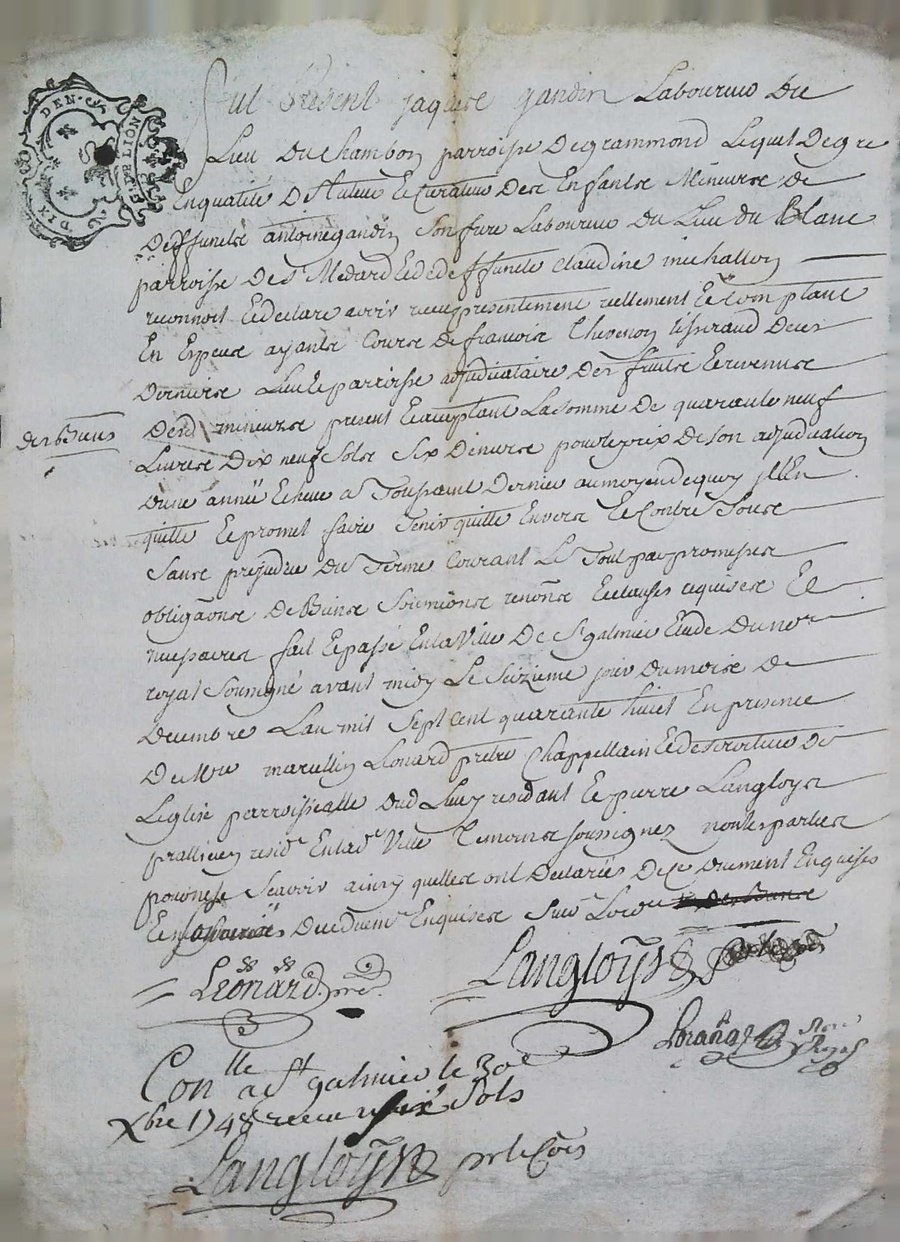 DIX DEN.
G. LION
Fut Present jaques gandin Laboureur Du
Lieu Du Chambon parroisse Degrammond Lequel Degre
En qualité De tuteur Et Curateur Des Enfants Mineurs de
Deffuncts antoine gandin Son frere Laboureur Du Lieu du Blanc
parroisse De St Medard Et de deffuncte Claudine michallon
reconnoit Et declare avoir receu presentement reellement Et Comptant
En Espece ayants Cours De francois Thevenon tisserand De ces
Derniers Lieu Et parroisse adjudicataire Des fruits Et revenus
des Biens
Desd mineurs present Et acceptant La somme De quarante neuf
Livres Dix neuf Sols Six Deniers pour le prix De son adjudication
Dune année Echue a Toussaint Dernier au moyen de quoy il En
quitte Et promet faire Tenir quitte Envers Et Contre Tous
Sans prejudice Du Terme Courant Le Tout par promesses
obligaons De Biens Soumions renons Et clauses requises Et
necessaires fait Et passé En la Ville De St galmier Etude Du nore
royal Soussigné avant midy Le Seizieme jour Du mois De
Decembre L'an mil Sept Cent quarante huict En presence
De Mre marcellin Léonard pretre Chappellain Et desserviteur De
L'église parroissialle Dud Lieu y residant Et pierre Langloys
pratticien residt En lad Ville Temoins soussignez non les parties
pour ne Scavoir ainsy quelles ont Declarées De ce Duement Enquises
Et Duement Enquises
Léonard pre
Langloys
Loraña Nore Royal
Conlle a St galmier le 30e
Xbre 1748 receu six Sols
Langloys pr le Cois